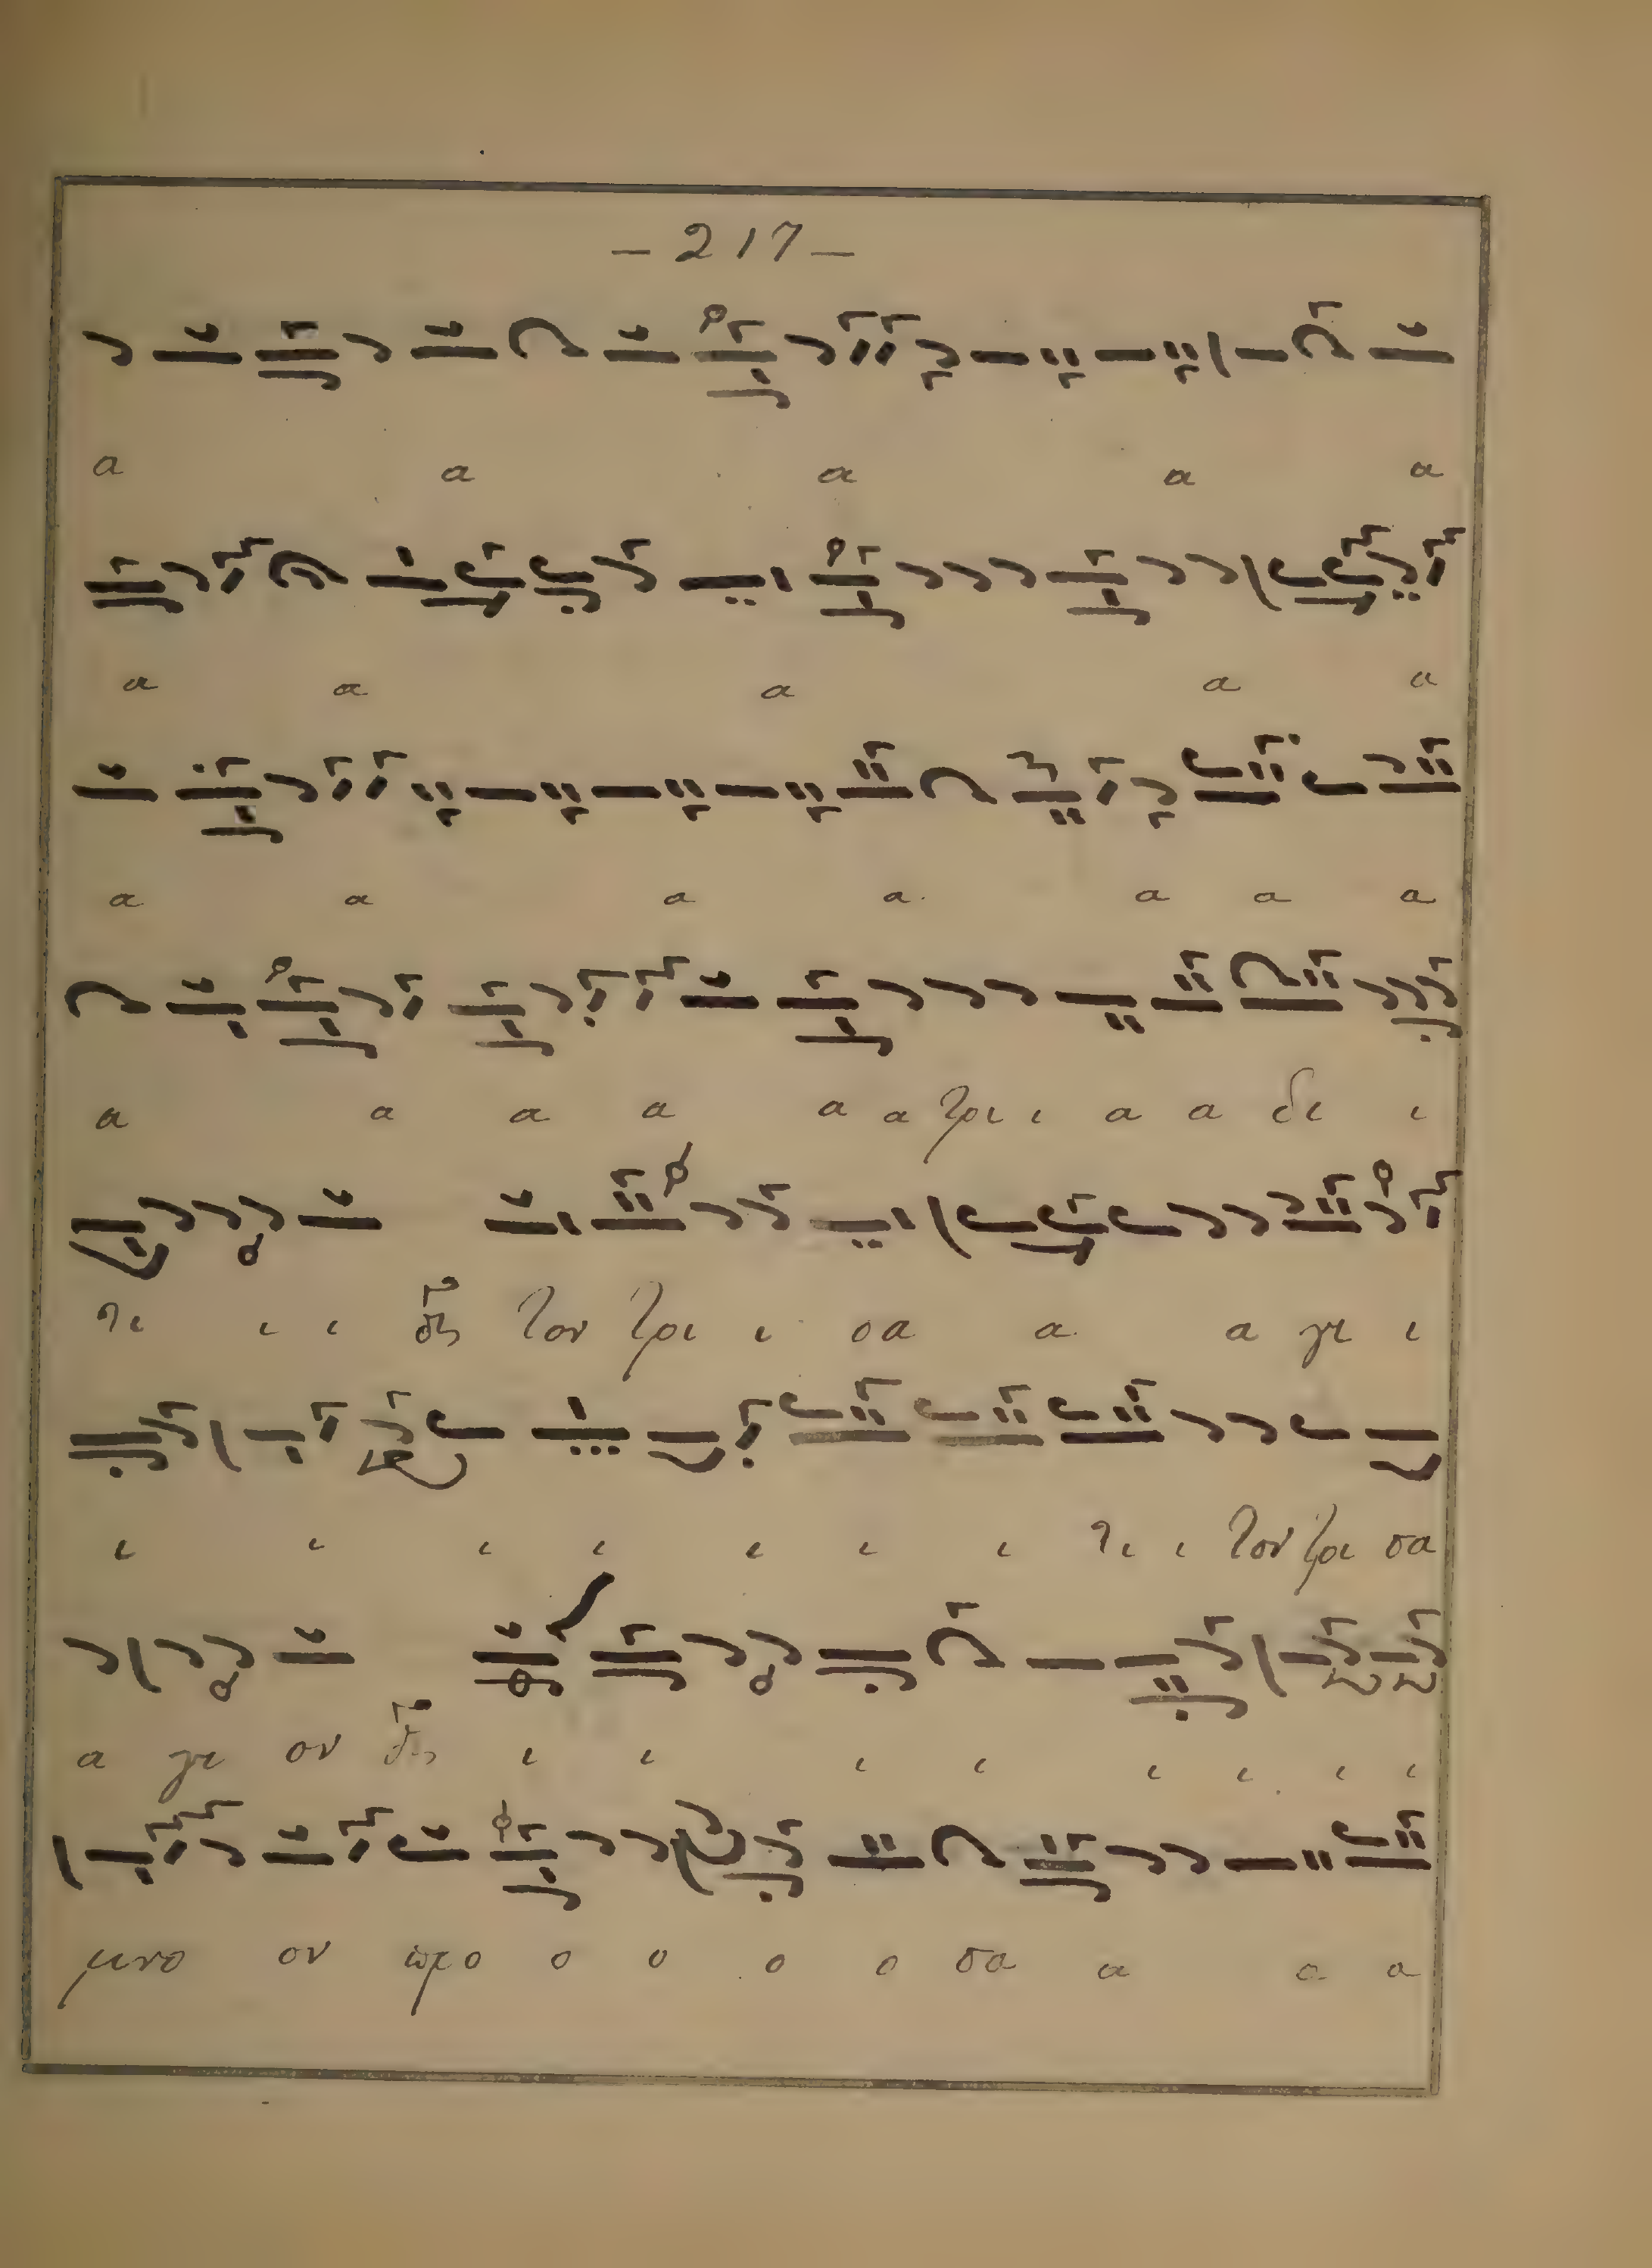 – 217 –
α α α α α
α α α α α
α α α α α α α
α α α α α α τρι ι α α δι ι
τι ι ι τον τρι ι σα α α γι ι
ι ι ι ι ι ι ι τι ι τον τρι σα
α γι ον ι ι ι ι ι ι ι ι
μνο ον προ ο ο ο ο σα α α α